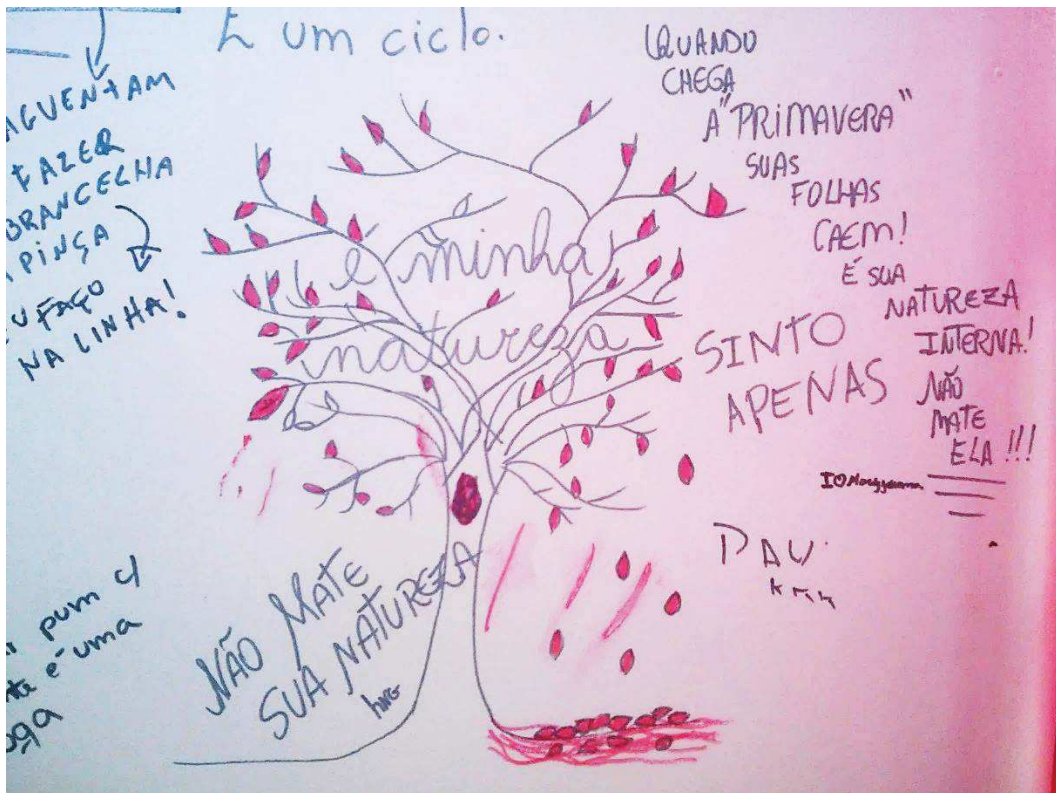 É um ciclo.
AGUENTAM
FAZER
BRANCELHA
PINÇA
EU FAÇO
NA LINHA!
QUANDO
CHEGA
A "PRIMAVERA"
SUAS
FOLHAS
CAEM!
É SUA
NATUREZA
INTERNA!
NÃO
MATE
ELA!!!
é minha
natureza
SINTO
APENAS
NÃO MATE
SUA NATUREZA
PAU
pum
é uma